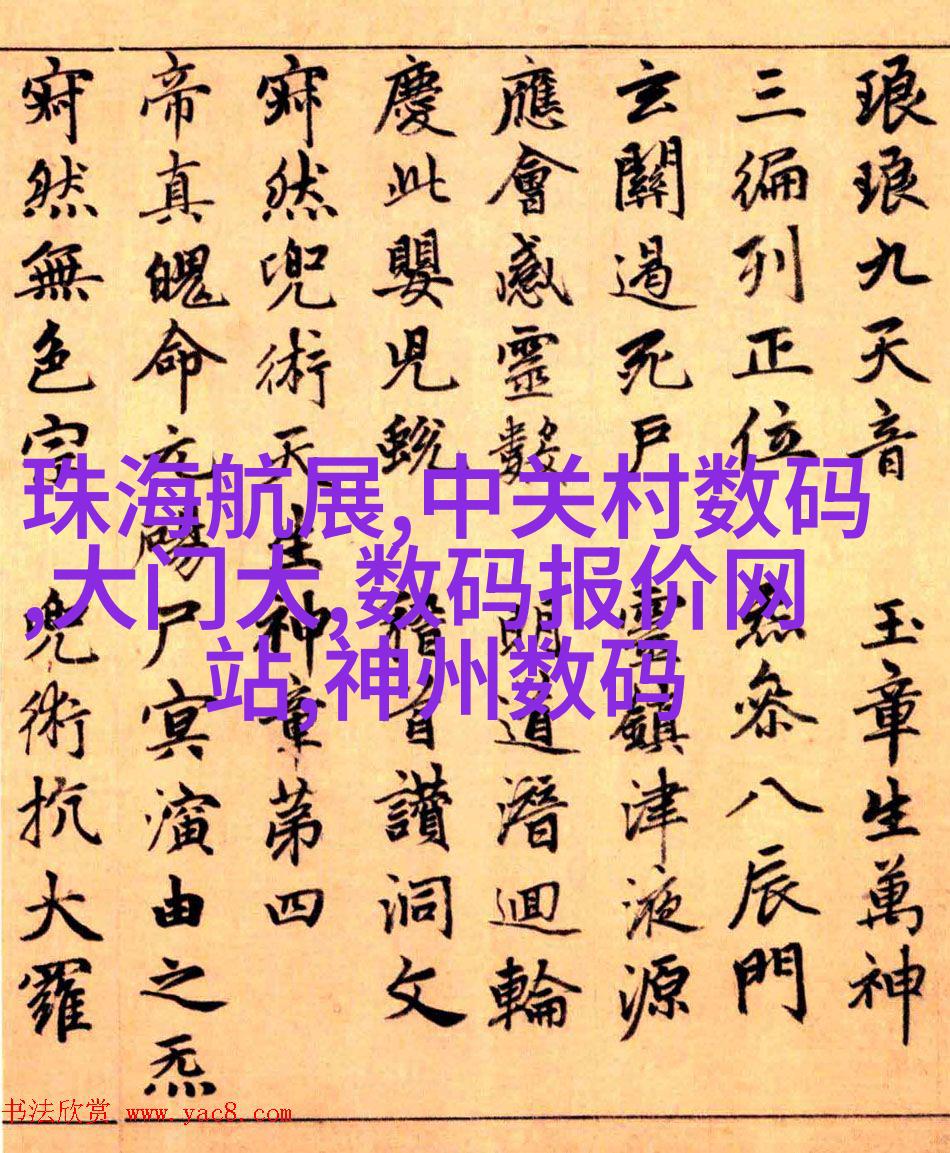 琅琅九天音 玉章生萬神
三徧列正位 叅八辰門
玄關遏死戶 靈鎮津液源
應會感靈數 明道潛迴輪
慶此嬰兒蛻 稽首讃洞文
寂然兜術天生神章第四
帝真魄命元陽尸冥演由之炁
寂然無色宗 兜術抗大羅
珠海航展,中关村数码
,大门大,数码报价网
站,神州数码
书法欣赏 www.yac8.com